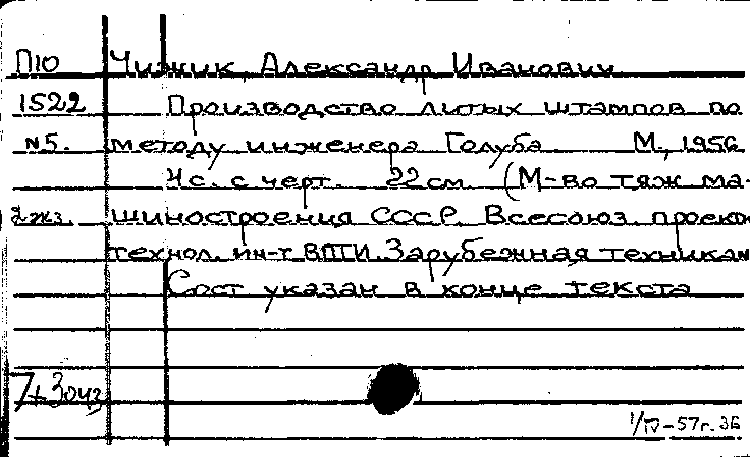 П10 Чижик, Александр Иванович
1522 Производство литых штампов по
N5. методу инженера Голуба М., 1956
4 с. с черт. 22 см. (М-во тяж ма-
2 экз. шиностроения СССР. Всесоюз. проект
технол. ин-т ВПТИ. Зарубежная техника N
Сост указан в конце текста
1/IV-57г. 36